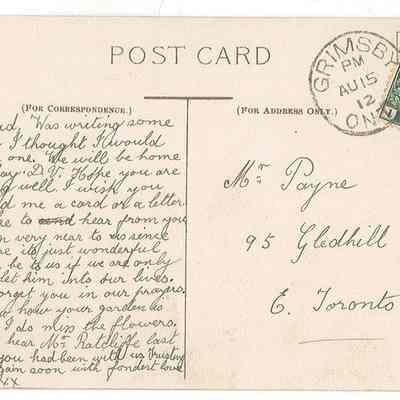 POST CARD
(FOR CORRESPONDENCE.)
Was writing some
I thought I would
one. We will be home
D.V. Hope you are
well I wish you
me a card or a letter
to hear from you
very near to us
it's just wonderful
be to us if we are only
let him into our lives.
you in our prayers.
how your garden is
I do miss the flowers.
hear Mr Ratcliffe last
you had been with us Trusting
soon with fondest love
xx
(FOR ADDRESS ONLY.)
Mr Payne
95 Gledhill
E. Toronto
GRIMSBY
PM
AU 15
12
ONT